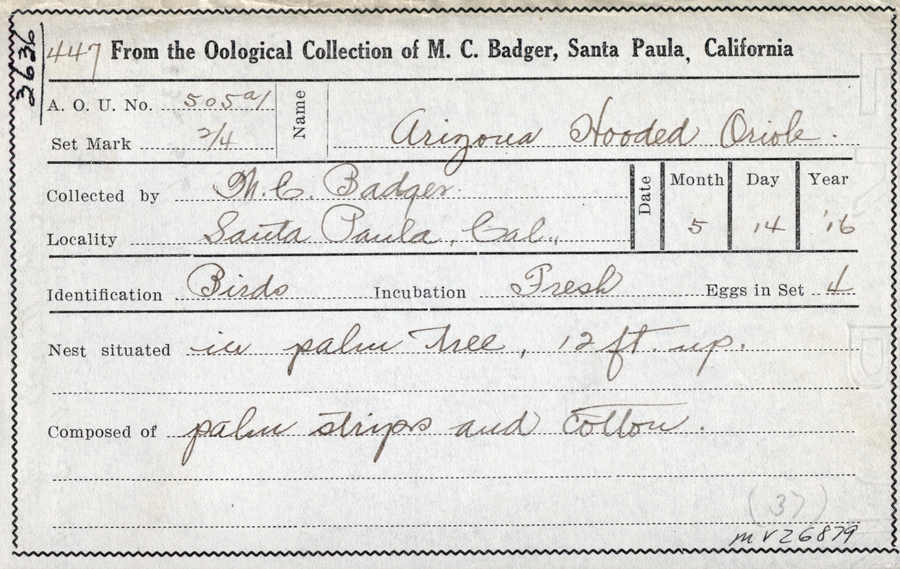 2636
447 From the Oological Collection of M. C. Badger, Santa Paula, California
A. O. U. No. 505a/1
Set Mark 2/4
Name Arizona Hooded Oriole.
Collected by M. C. Badger.
Locality Santa Paula, Cal.,
Date Month Day Year
5 14 '16
Identification Birds Incubation Fresh Eggs in Set 4
Nest situated in palm tree, 12 ft. up.
Composed of palm strips and cotton.
(37)
MVZ6879